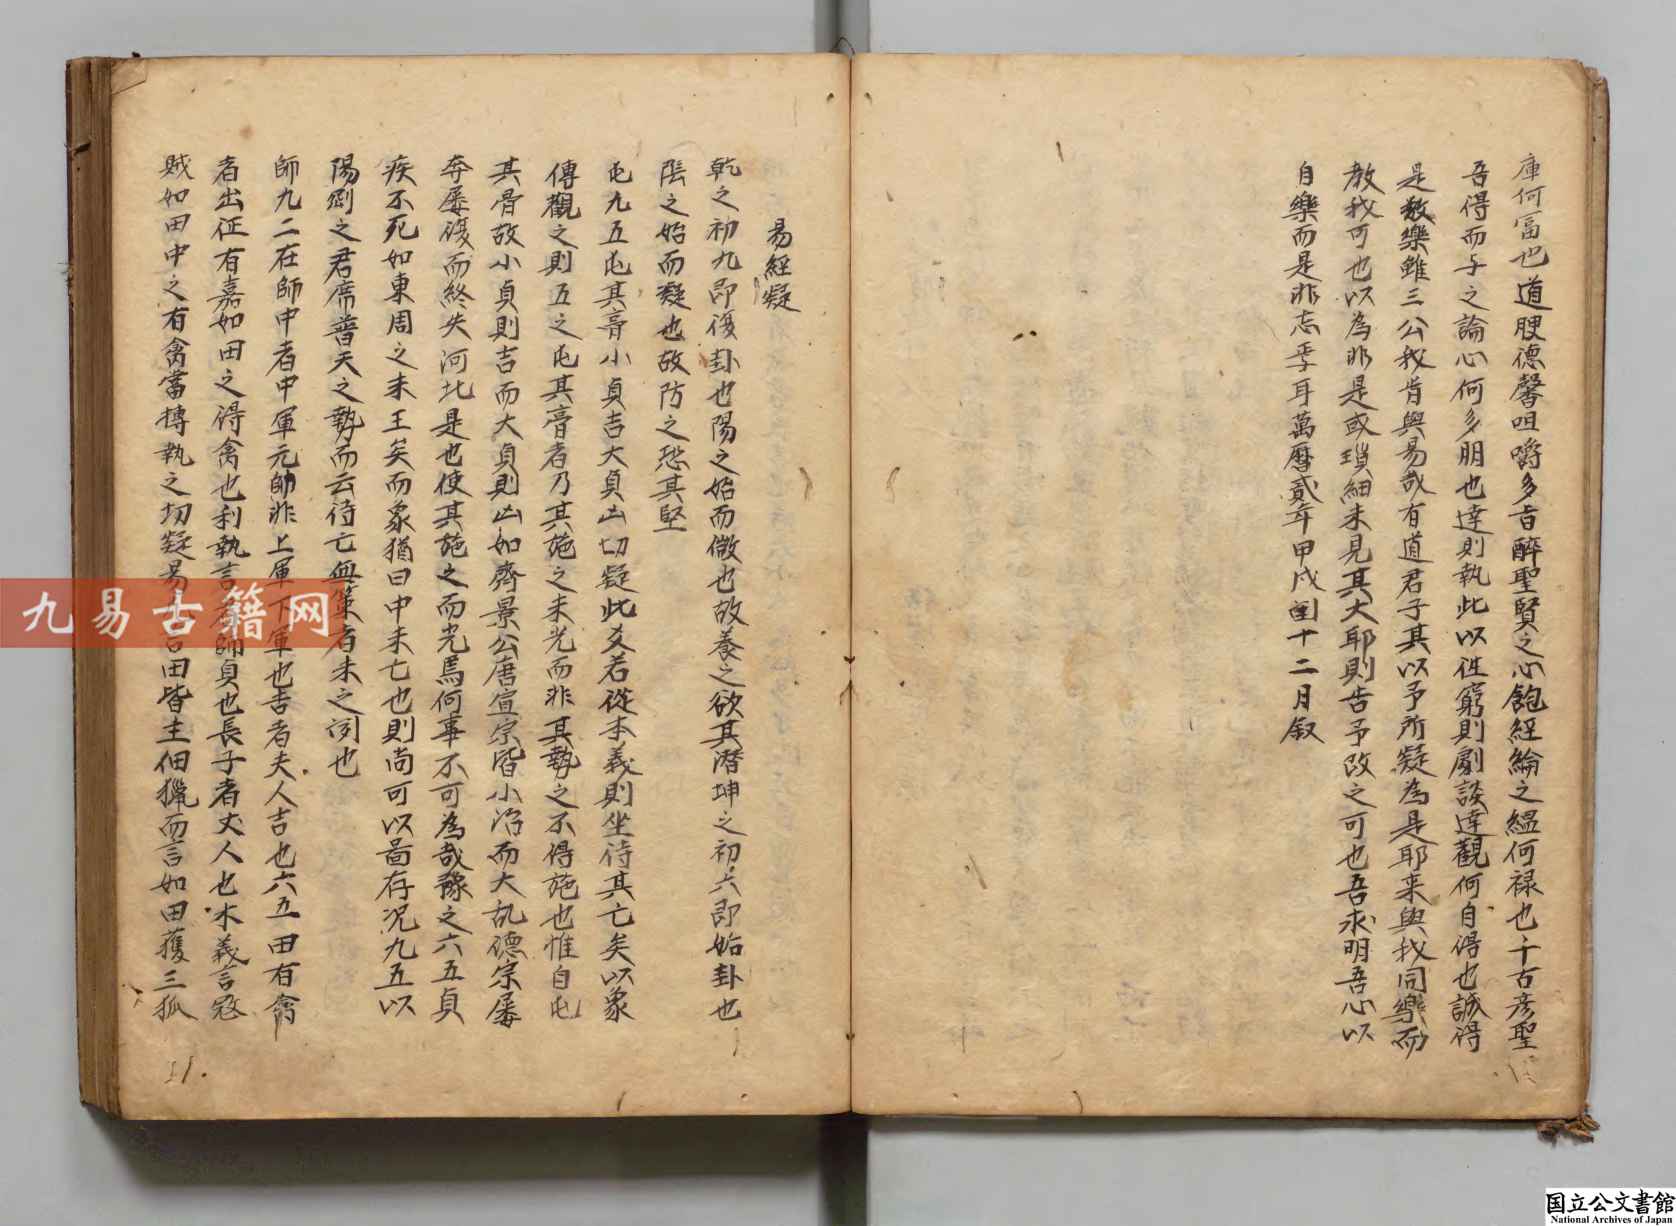 庫何富也道腴德馨咀嚼多旨醉聖賢之心飽經綸之緼何禄也千古彦聖
吾得而子之論心何多朋也達則執此以徃窮則劇談達觀何自得也誠得
是数樂雖三公我肯與易哉有道君子其以予所疑為是耶来與我同樂而
教我可也以為非是或瑣細未見其大耶則告予予改之可也吾求明吾心以
自樂而是非志乎耳萬曆貳年甲戌閏十二月叙
易經疑
乾之初九即復卦也陽之始而微也故養之欲其潜坤之初六即姤卦也
陰之始而凝也故防之恐其堅
屯九五屯其膏小貞吉大貞凶切疑此爻若從本義則坐待其亡矣以象
傳觀之則五之屯其膏者乃其施之未光而非其勢之不得施也惟自屯
其膏故小貞則吉而大貞則凶如齊景公唐宣宗皆小治而大乱德宗屡
奔屡復而終失河北是也使其施之而光焉何事不可為哉豫之六五貞
疾不死如東周之未王矣而象猶曰中未亡也則尚可以啚存况九五以
陽剛之君席普天之勢而云待亡無策者未之闻也
師九二在師中者中軍元帥非上軍下軍也吉者夫人吉也六五田有禽
者出征有嘉如田之得禽也利執言者師貞也長子者丈人也本義言宼
賊如田中之有禽當摶執之切疑易之言田皆主佃獵而言如田獲三狐
九易古籍网
11.
国立公文書館
National Archives of Japan